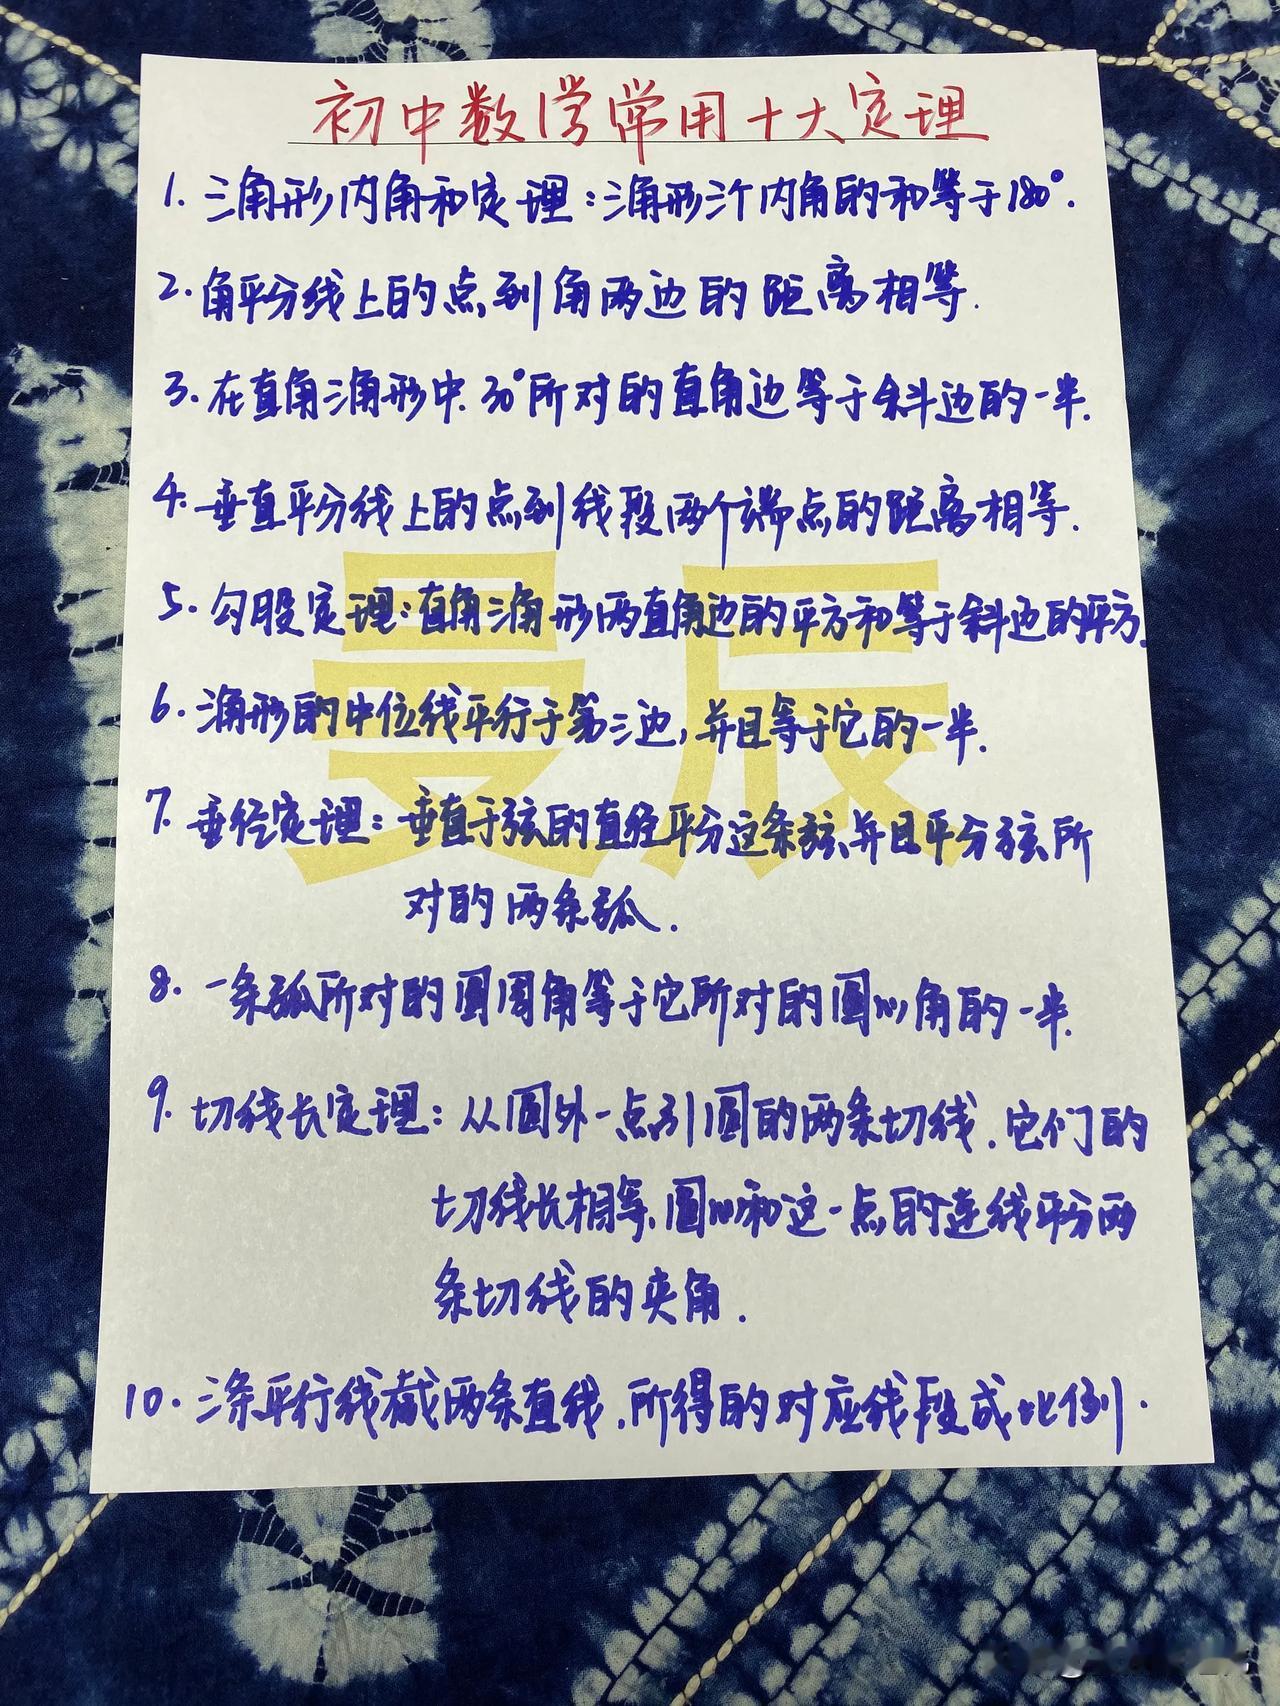 初中数学常用十大定理
1. 三角形内角和定理:三角形三个内角的和等于180°.
2. 角平分线上的点到角两边的距离相等.
3. 在直角三角形中.30°所对的直角边等于斜边的一半.
4. 垂直平分线上的点到线段两个端点的距离相等.
5. 勾股定理:直角三角形两直角边的平方和等于斜边的平方.
6. 三角形的中位线平行于第三边,并且等于它的一半.
7. 垂径定理:垂直于弦的直径平分这条弦、并且平分弦所
对的两条弧.
8. 一条弧所对的圆周角等于它所对的圆心角的一半.
9. 切线长定理:从圆外一点引圆的两条切线.它们的
切线长相等.圆心和这一点的连线平分两
条切线的夹角.
10. 三条平行线截两条直线.所得的对应线段成比例.
曼辰